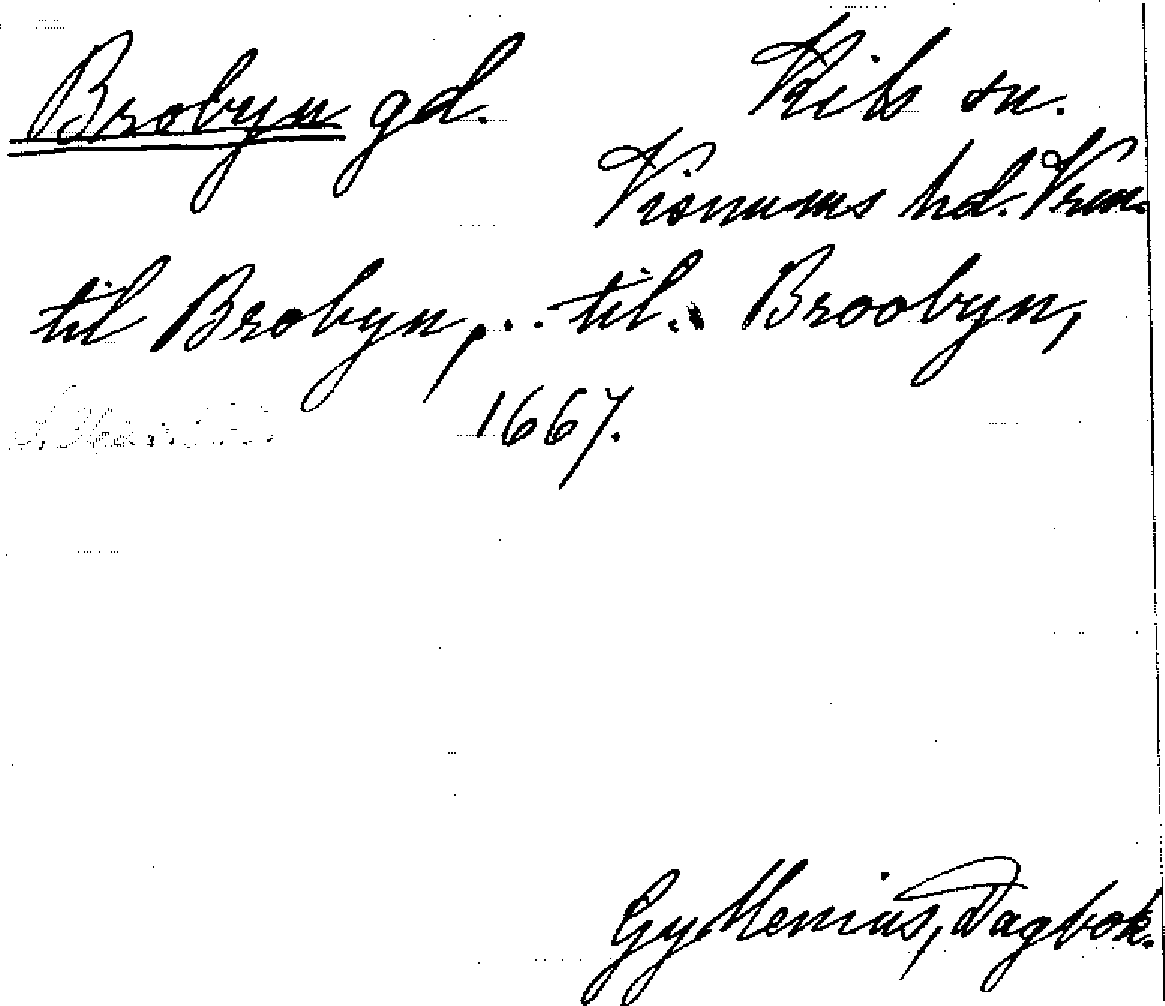 Brobyn gd. Kils sn.
Visnums hd. Vrm.
til Brobyn, .. til. Broobyn,
1667.
Gyllenius, Dagbok.